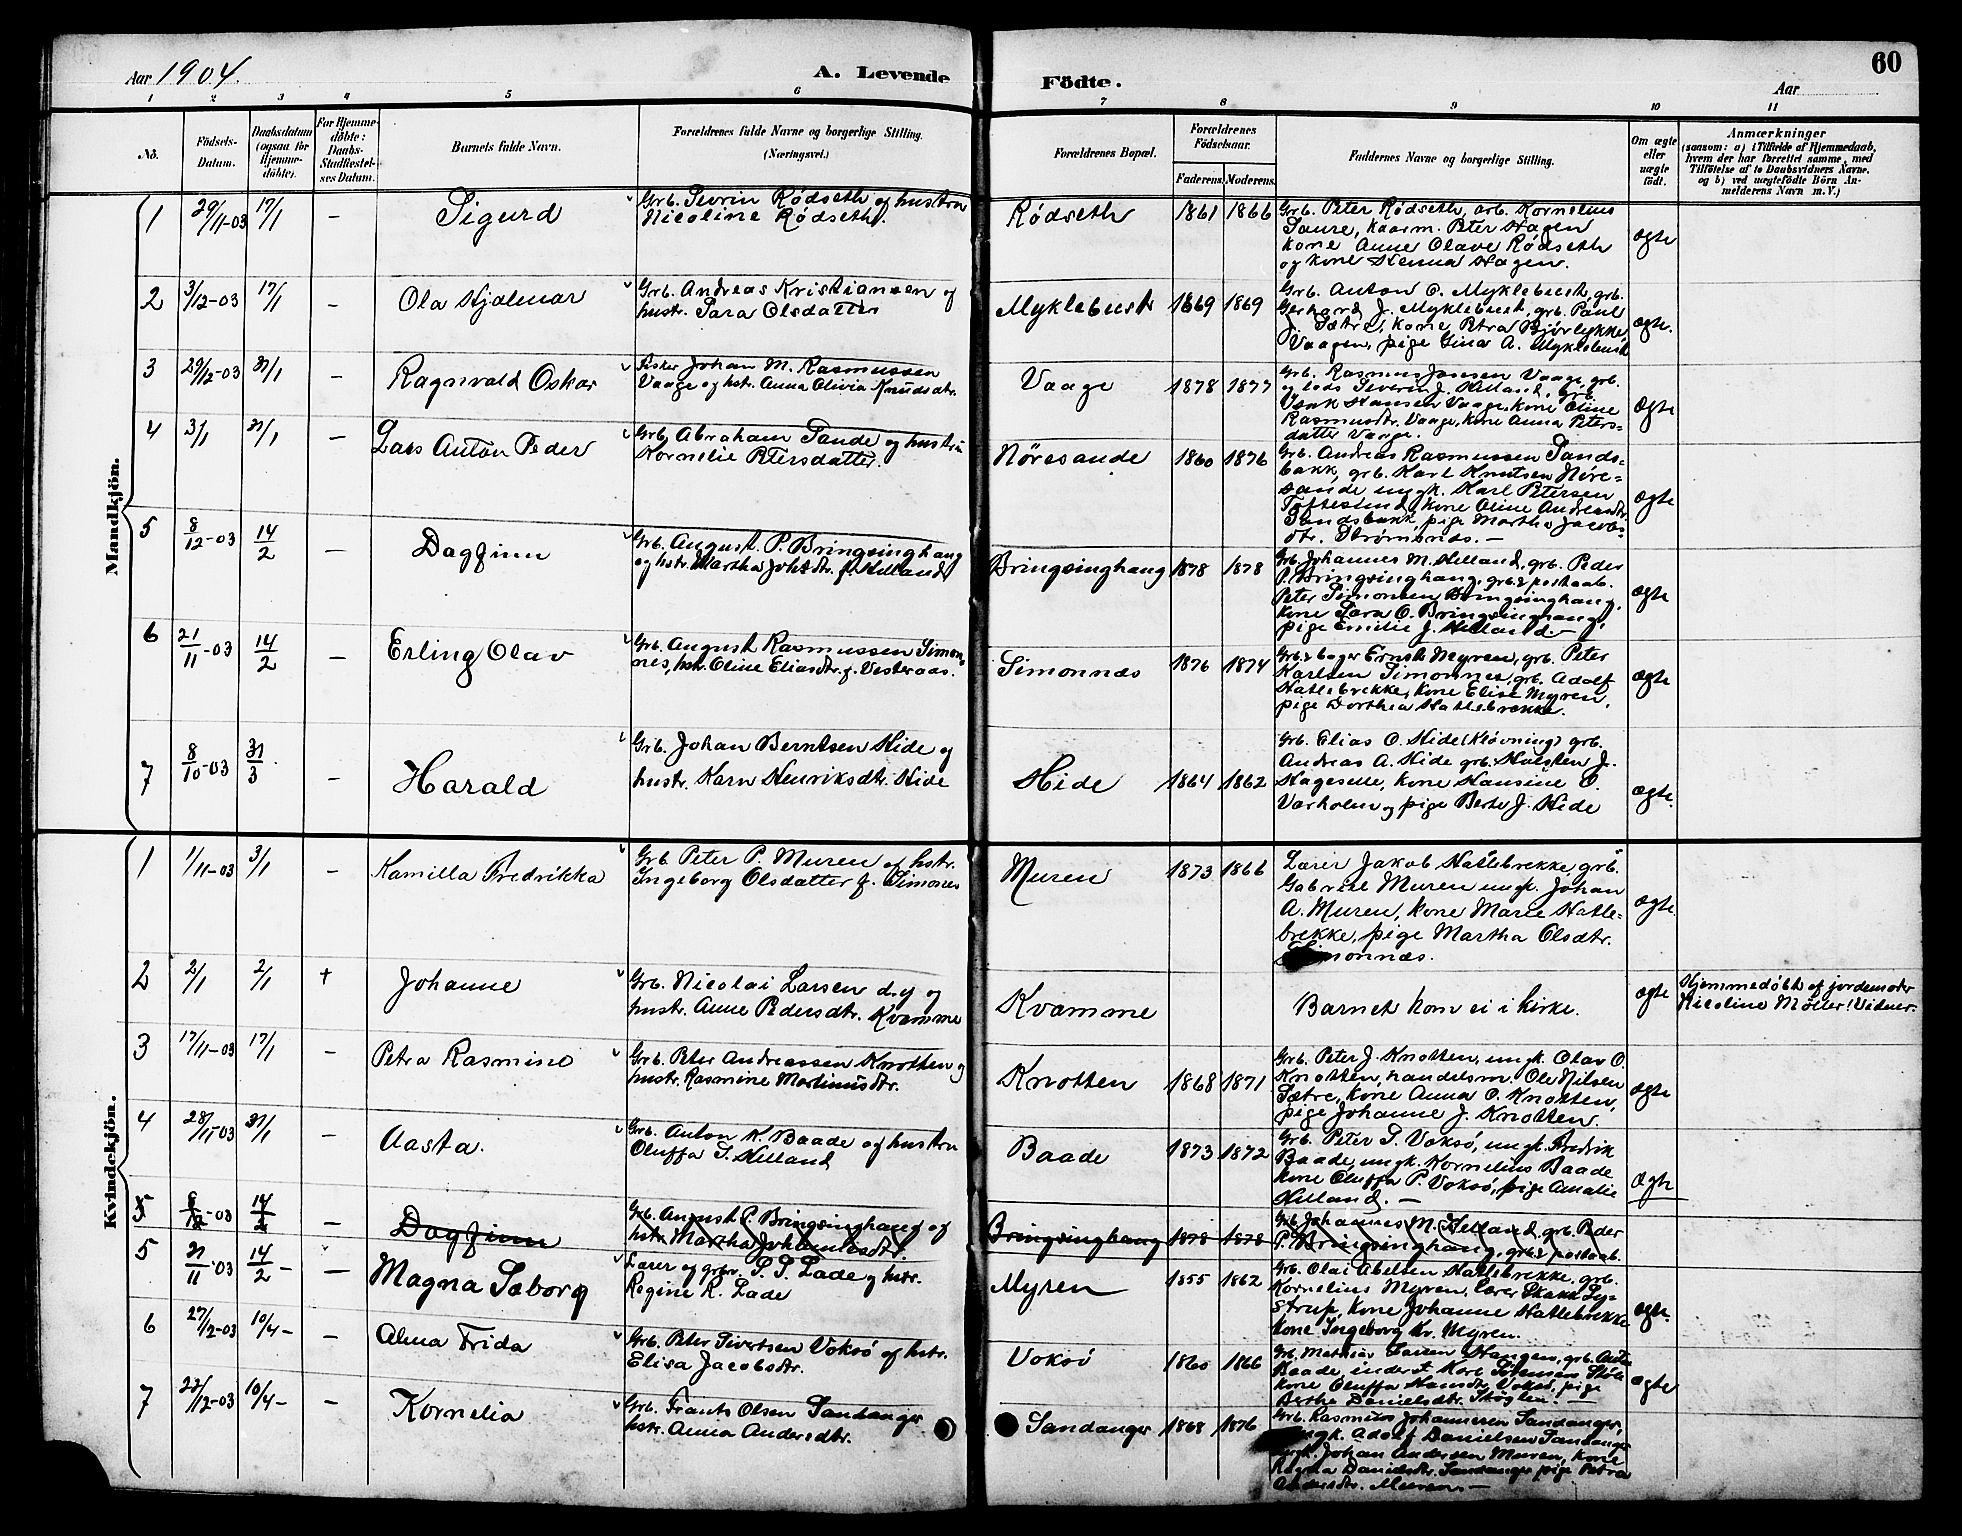 Aar 1904. A. Levende Födte. Aar 60
1 2 3 4 5 6 7 8 9 10 11
No. Födsels-Datum. Daabsdatum (ogsaa for Hjemme-döbte). For Hjemme-döbte: Daabs-Stadfæstel-ses Datum. Barnets fulde Navn. Forældrenes fulde Navne og borgerlige Stilling. (Næringsvei.) Forældrenes Bopæl. Forældrenes Födselsaar. Faderens. Moderens. Faddernes Navne og borgerlige Stilling. Om ægte eller uægte födt. Anmærkninger (saasom: a) i Tilfælde af Hjemmedaab, hvem der har forrettet samme, med Tilföielse af to Daabsvidners Navne. og b) ved uægtefödte Börn An-melderens Navn m. V.)
Mandkjön.
1 29/11-03 17/1 – Sigurd Grb. Sevrin Rødseth og hustru
Nicoline Rødseth. Rødseth 1861 1866 Grb. Peter Rødseth, arb. Kornelius
Saure, kaarm. Peter Hagen
kone Anne Olave Rødseth
og kone Hanna Hagen. ægte
2 3/12-03 17/1 – Ola Hjalmar Grb. Andreas Kristiansen og
hustr. Sara Olsdatter Myklebust 1869 1869 Grb. Anton O. Myklebust, grb.
Gerhard J. Myklebust, grb. Paul
J. Sætre, kone Petra Bjørlykke,
Vaagen, pige Gina A. Myklebust ægte.
3 29/12-03 31/1 – Ragnvald Oskar Fisker Johan M. Rasmussen
Vaage og hst. Anna Olivia Knudsdtr. Vaage 1878 1877 Grb. Rasmus Jansen Vaage, grb.
og lods Severin J. Helland, grb.
Isak Hansen Vaage, kone Oline
Rasmusdtr. Vaage, kone Anna Peters-
datter Vaage. ægte
4 3/1 31/1 – Lars Anton Peder Grb. Abraham Sande og hustru
Kornelie Petersdatter. Nøresande 1860 1876 Grb. Andreas Rasmussen Sands-
bakk, grb. Karl Knutsen Nøre-
sande ungk. Karl Petersen
Toftesund, kone Oline Andreasdtr.
Sandsbakk, pige Martha Jacobs-
dtr. Strømsnds. – ægte
5 8/12-03 14/2 – Dagfinn Grb. August. P. Bringsinghaug
og hstr. Martha Johsdtr. f. Helland Bringsinghaug 1878 1878 Grb. Johannes M. Helland, grb. Peder
P. Bringsinghaug, grb. & postaab.
Peter Simonsen Bringsinghaug,
kone Sara O. Bringsinghaug,
pige Emilie J. Helland. – ægte
6 21/11-03 14/2 – Erling Olav Grb. August Rasmussen Simon-
nes, hst. Oline Eliasdtr. f. Vesteraas. Simonnæs 1876 1874 Grb. & bager Ernst Myren, grb. Peter
Karlsen Simonnes, grb. Adolf
Hatlebrekke, kone Elise Myren,
pige Dorthea Hatlebrekke. ægte
7 8/10-03 31/3 – Harald Grb. Johan Berntsen Hide og
hustr. Karn Henriksdtr. Hide Hide 1864 1862 Grb. Elias O. Hide (Kløvning) grb.
Andreas A. Hide grb. Halsten J.
Hageselle, kone Hansine O.
Varholm og pige Berte J. Hide ægte.
Kvindekjön.
1 1/11-03 3/1 – Kamilla Fredrikka Grb. Peter P. Muren og hstr.
Ingeborg Olsdatter f. Simones Muren 1873 1866 Lærer Jakob Hatlebrekke, grb.
Gabriel Muren ungk. Johan
A. Muren, kone Marie Hatle-
brekke, pige Martha Olsdtr.
Simonnæs. ægte.
2 2/1 2/1 + Johanne Grb. Nicolai Larsen d.y og
hustr. Anne Pedersdtr. Kvamme Kvamme Barnet kom ei i kirke. ægte Hjemmedøbt af jordemoder
Nicoline Møller! Vidner.
3 17/11-03 17/1 – Petra Rasmine Grb. Peter Andreassen Knotten og
hustr. Rasmine Martinusdtr. Knotten 1868 1871 Grb. Peter J. Knotten, ungk. Olav O.
Knotten, handelsm. Ole Nilsen
Sætre, kone Anna O. Knotten,
pige Johanne J. Knotten. ægte
4 28/11-03 31/1 – Aasta. Grb. Anton K. Baade og hustru
Oluffa S. Helland Baade 1873 1872 Grb. Peter S. Voksø, ungk. Fredrik
Baade, ungk. Kornelius Baade
kone Oluffa P. Voksø, pige Amalie
Helland. – Ægte
5 8/12-03 14/2 – Dagfinn Grb. August P. Bringsinghaug og
hstr. Martha Johannesdtr. Bringsinghaug 1878 1878 Grb. Johannes M. Helland, grb. Peder
P. Bringsinghaug, grb. & postaab.
5 21/11-03 14/2 – – Magna Sæborg Lærer og grbr. S. S. Lade og hstr.
Regine K. Lade Myren 1855 1862 Grb. Olai Abelsen Hatlebrekke, grb.
Kornelius Myren, Lærer Skakk Ly-
strup, kone Johanne Hatlebrekke
kone Ingeborg Kr. Myren. ægte
6 27/12-03 10/4 – – Alma Frida Grb. Peter Sivertsen Voksø og hstr.
Elisa Jacobsdtr. Voksø 1860 1866 Grb. Mathias Larsen Haugen, grb. Anton
Baade, inderst Karl
kone Oluffa Hansdtr. Voksø, pige
Berthe Danielsdtr. – ægte
7 22/12-03 10/4 – – Kornelia Grb. Frants Olsen Sandanger
hstr. Anna Andersdtr. Sandanger 1868 1876 Grb. Rasmus Johannesen Sandanger,
ungk. Adolf Danielsen Sandanger
ungk. Johan Andersen Muren, kone
Ragna Danielsdtr. Sandanger pige Petra
Andersdtr. Muren. –